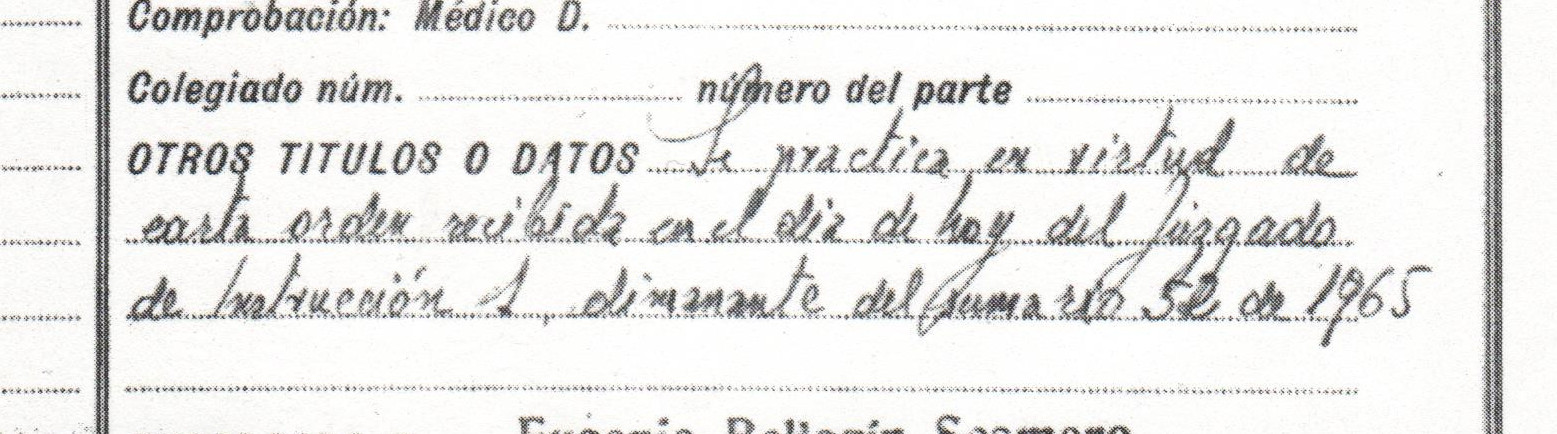 Comprobación: Médico D.
Colegiado núm. número del parte
OTROS TITULOS O DATOS Se practica en virtud de
carta orden recibida en el dia de hoy del Juzgado
de Instrucción 1, dimanante del sumario 52 de 1965